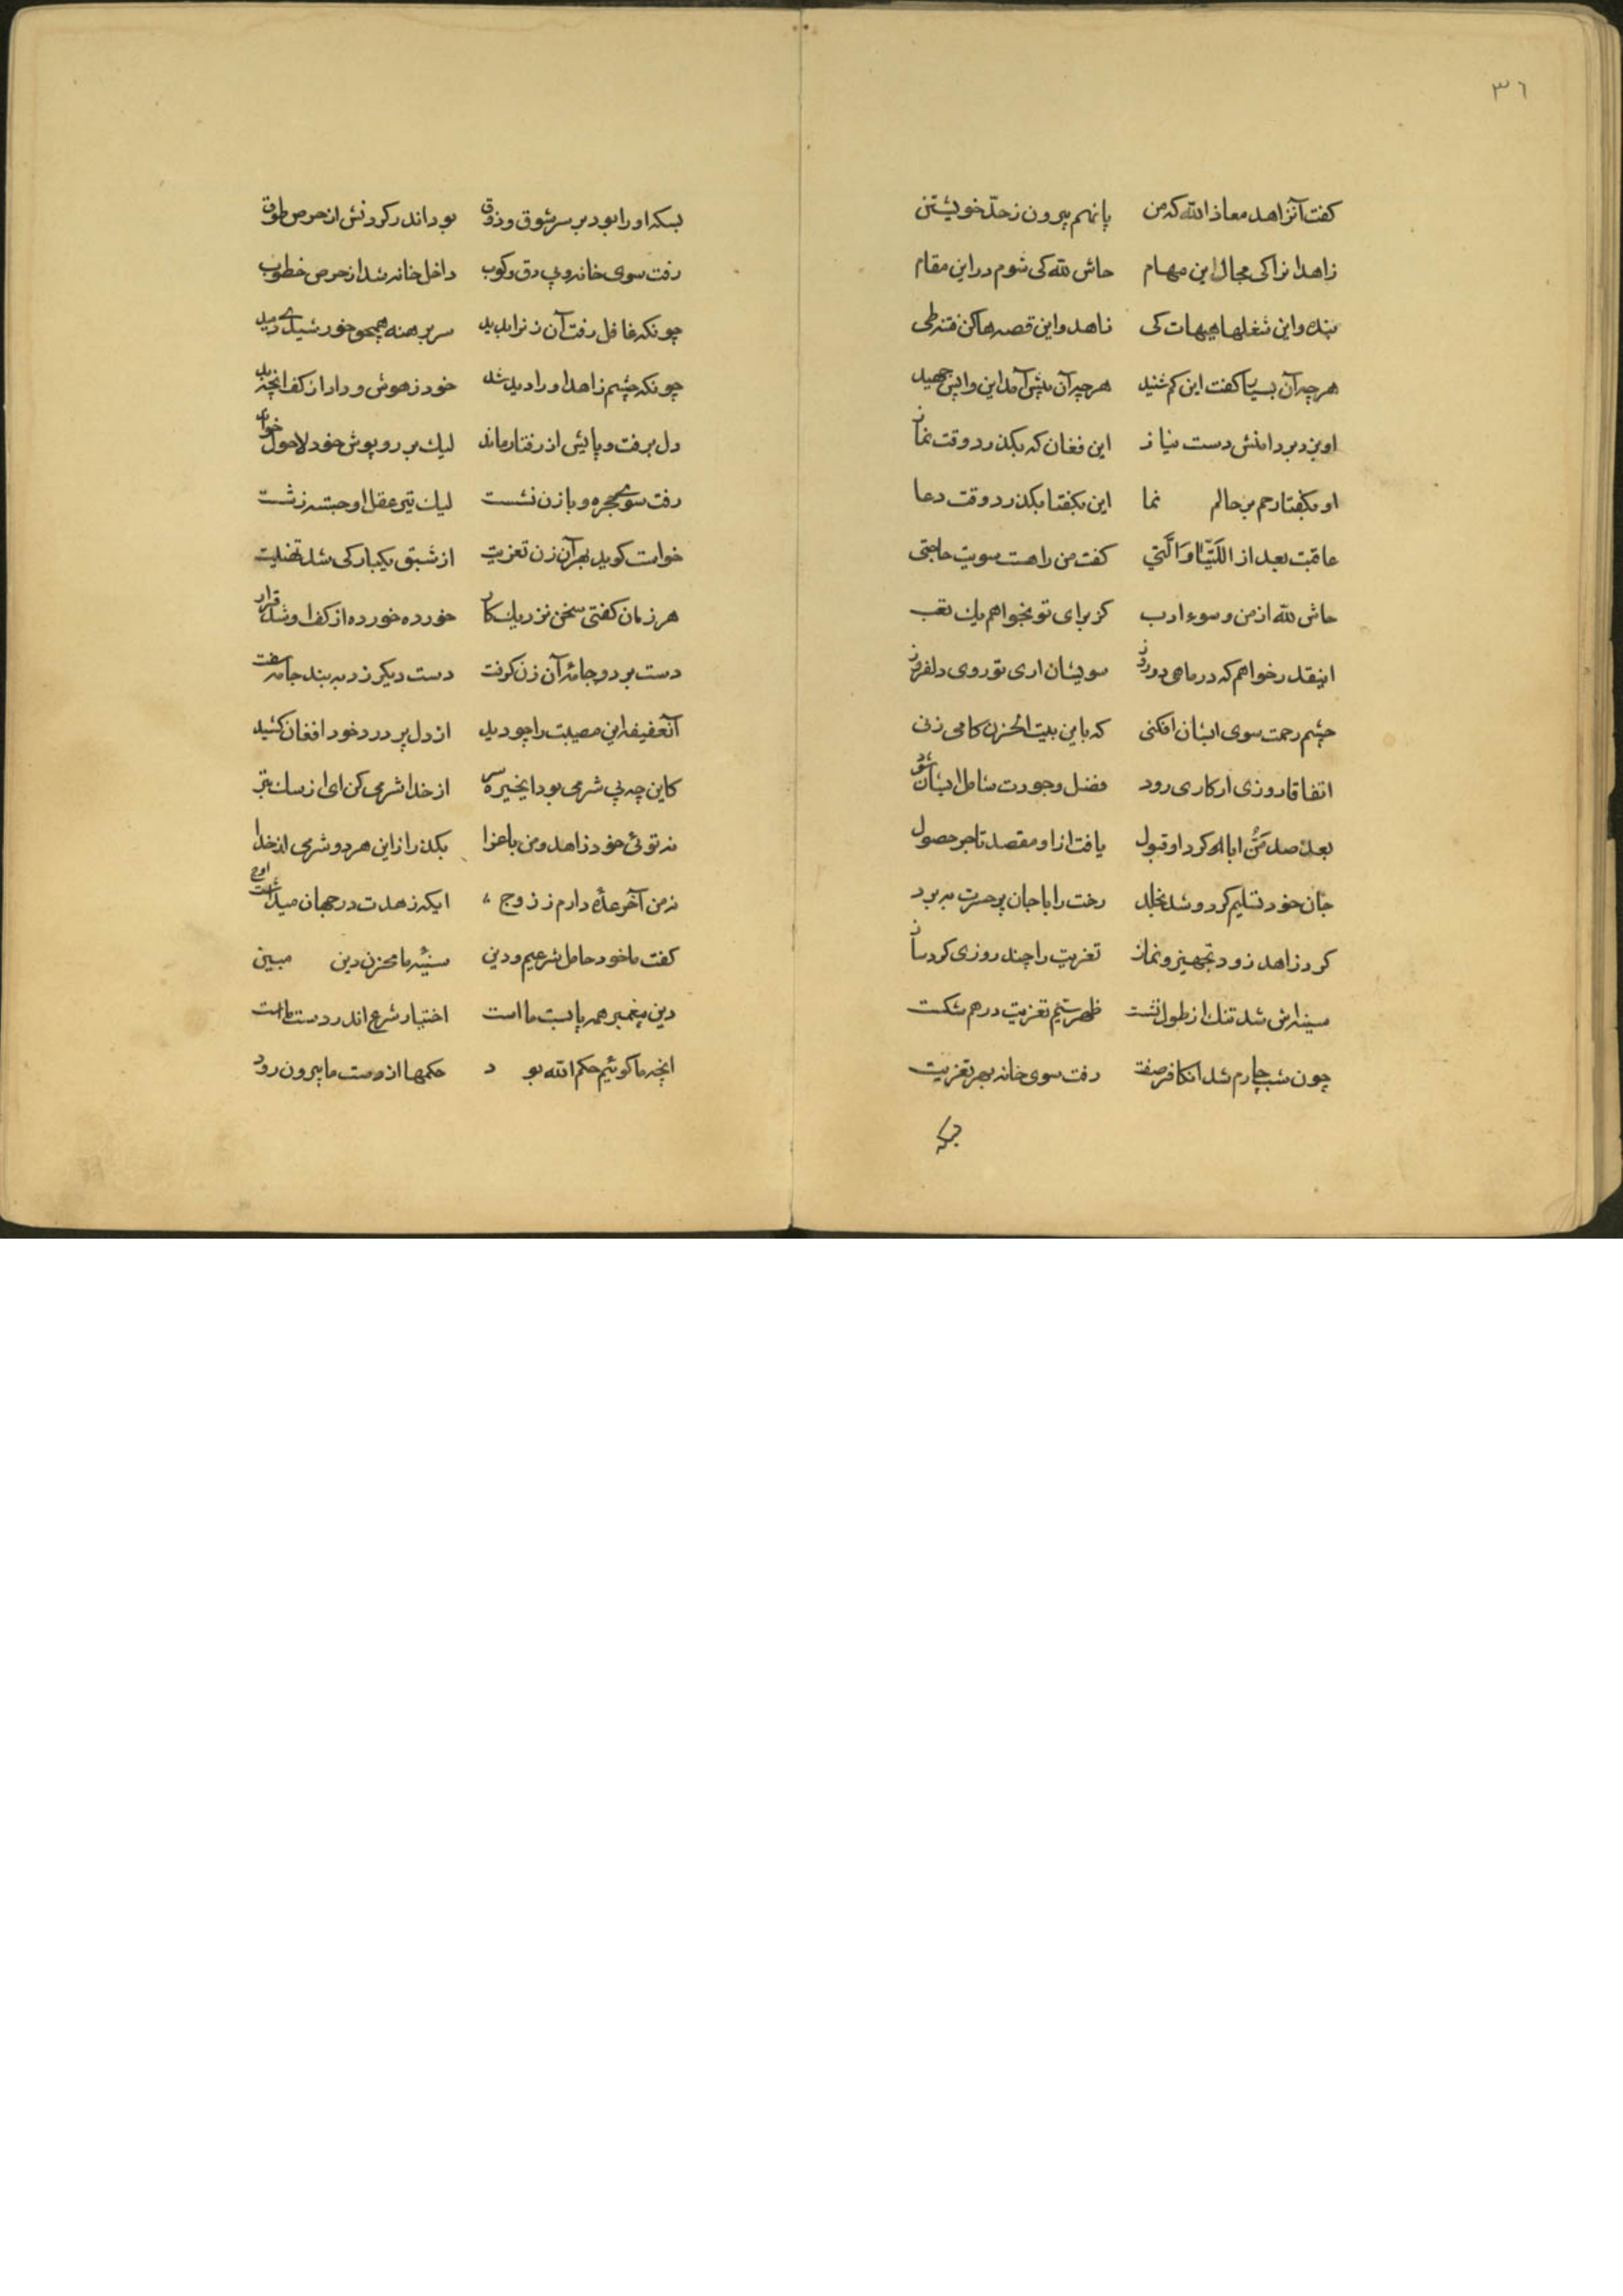 ٣٦
كفت آنزاهد معاذ الله كه من پانهم بيرون ز حدّ خويشتن
زاهدانرا كى مجال اين مهام حاش لله كى شوم در اين مقام
بنده و اين شغلها هيهات كى زاهد و اين قصه ها كن فتنه طى
هر چه آن بسيار كفت اين كم شنيد هر چه آن پيش آمد اين واپس جهيد
او بزد بر دامنش دست نياز اين فغان كه بكذرد وقت نماز
او بكفتا رحم بر حالم نما اين بكفتا بكذرد وقت دعا
عاقبت بعد از اللَتَيّا وَالَّتي كفت من را هست سويت حاجتى
حاش لله از من و سوء ادب كز براى تو بخواهم يك تعب
اينقدر خواهم كه در ماهى دو روز سويشان ارى تو روى دلفروز
چشم رحمت سوى ايشان افكنى كه باين بيت الحزن كامى زنى
اتفاقا روزى ار كارى رود فضل وجودت شامل ايشان شود
بعد صد مَنّ و ابا كرد او قبول يافت از او مقصد تاجر حصول
جان خود تسليم كرد و شد بخلد رخت را با جان پر حسرت ببرد
كرد زاهد زود تجهيز و نماز تعزيت را چند روزى كرد ساز
سينه اش شد تنك از طول نشست ظهر سيم تعزيت درهم شكست
چون شب چارم شد انكافر صفت رفت سوى خانه بهر تعزيت
بسكه
بسكه او را بود بر سر شوق و ذوق بود اندر كردنش از حرص طوق
رفت سوى خانه و بى دق و كوب داخل خانه شد از حرص خطوب
چونكه غافل رفت آن زنرا بديد سر برهنه همچو خورشيدى دميد
چونكه چشم زاهد او را ديد شد خود ز هوش و داد از كف انچه بد
دل برفت و پايش از رفتار ماند ليك بر روپوش خود لاحول خواند
رفت سوى حجره و با زن نشست ليك تير عقل او جسته ز شست
خواست كويد بهر آن زن تعزيت از شبق يكباركى شد تهنيت
هر زمان كفتى سخن نزديك كار خورده خورده از كف او شد قرار
دست برد و جامهٔ آن زن كرفت دست ديكر زد به بند جامه سفت
آنعفيفه اين مصيبت را چو ديد از دل پر درد خود افغان كشيد
كاين چه بى شرمى بود ايخيره سر از خدا شرمى كن اى از سك بتر
نه توئى خود زاهد و من باعزا بكذر از اين هر دو شرمى از خدا
نه من آخر عدّه دارم ز زوج ايكه زهدت در جهان ميداشت اوج
كفت ما خود حامل شرعيم و دين سينهٔ ما مخزن دين مبين
دين پيغمبر همه پابست ما است اختيار شرع اندر دست ما است
انچه ما كوئيم حكم الله بود حكمها از دست ما بيرون رود